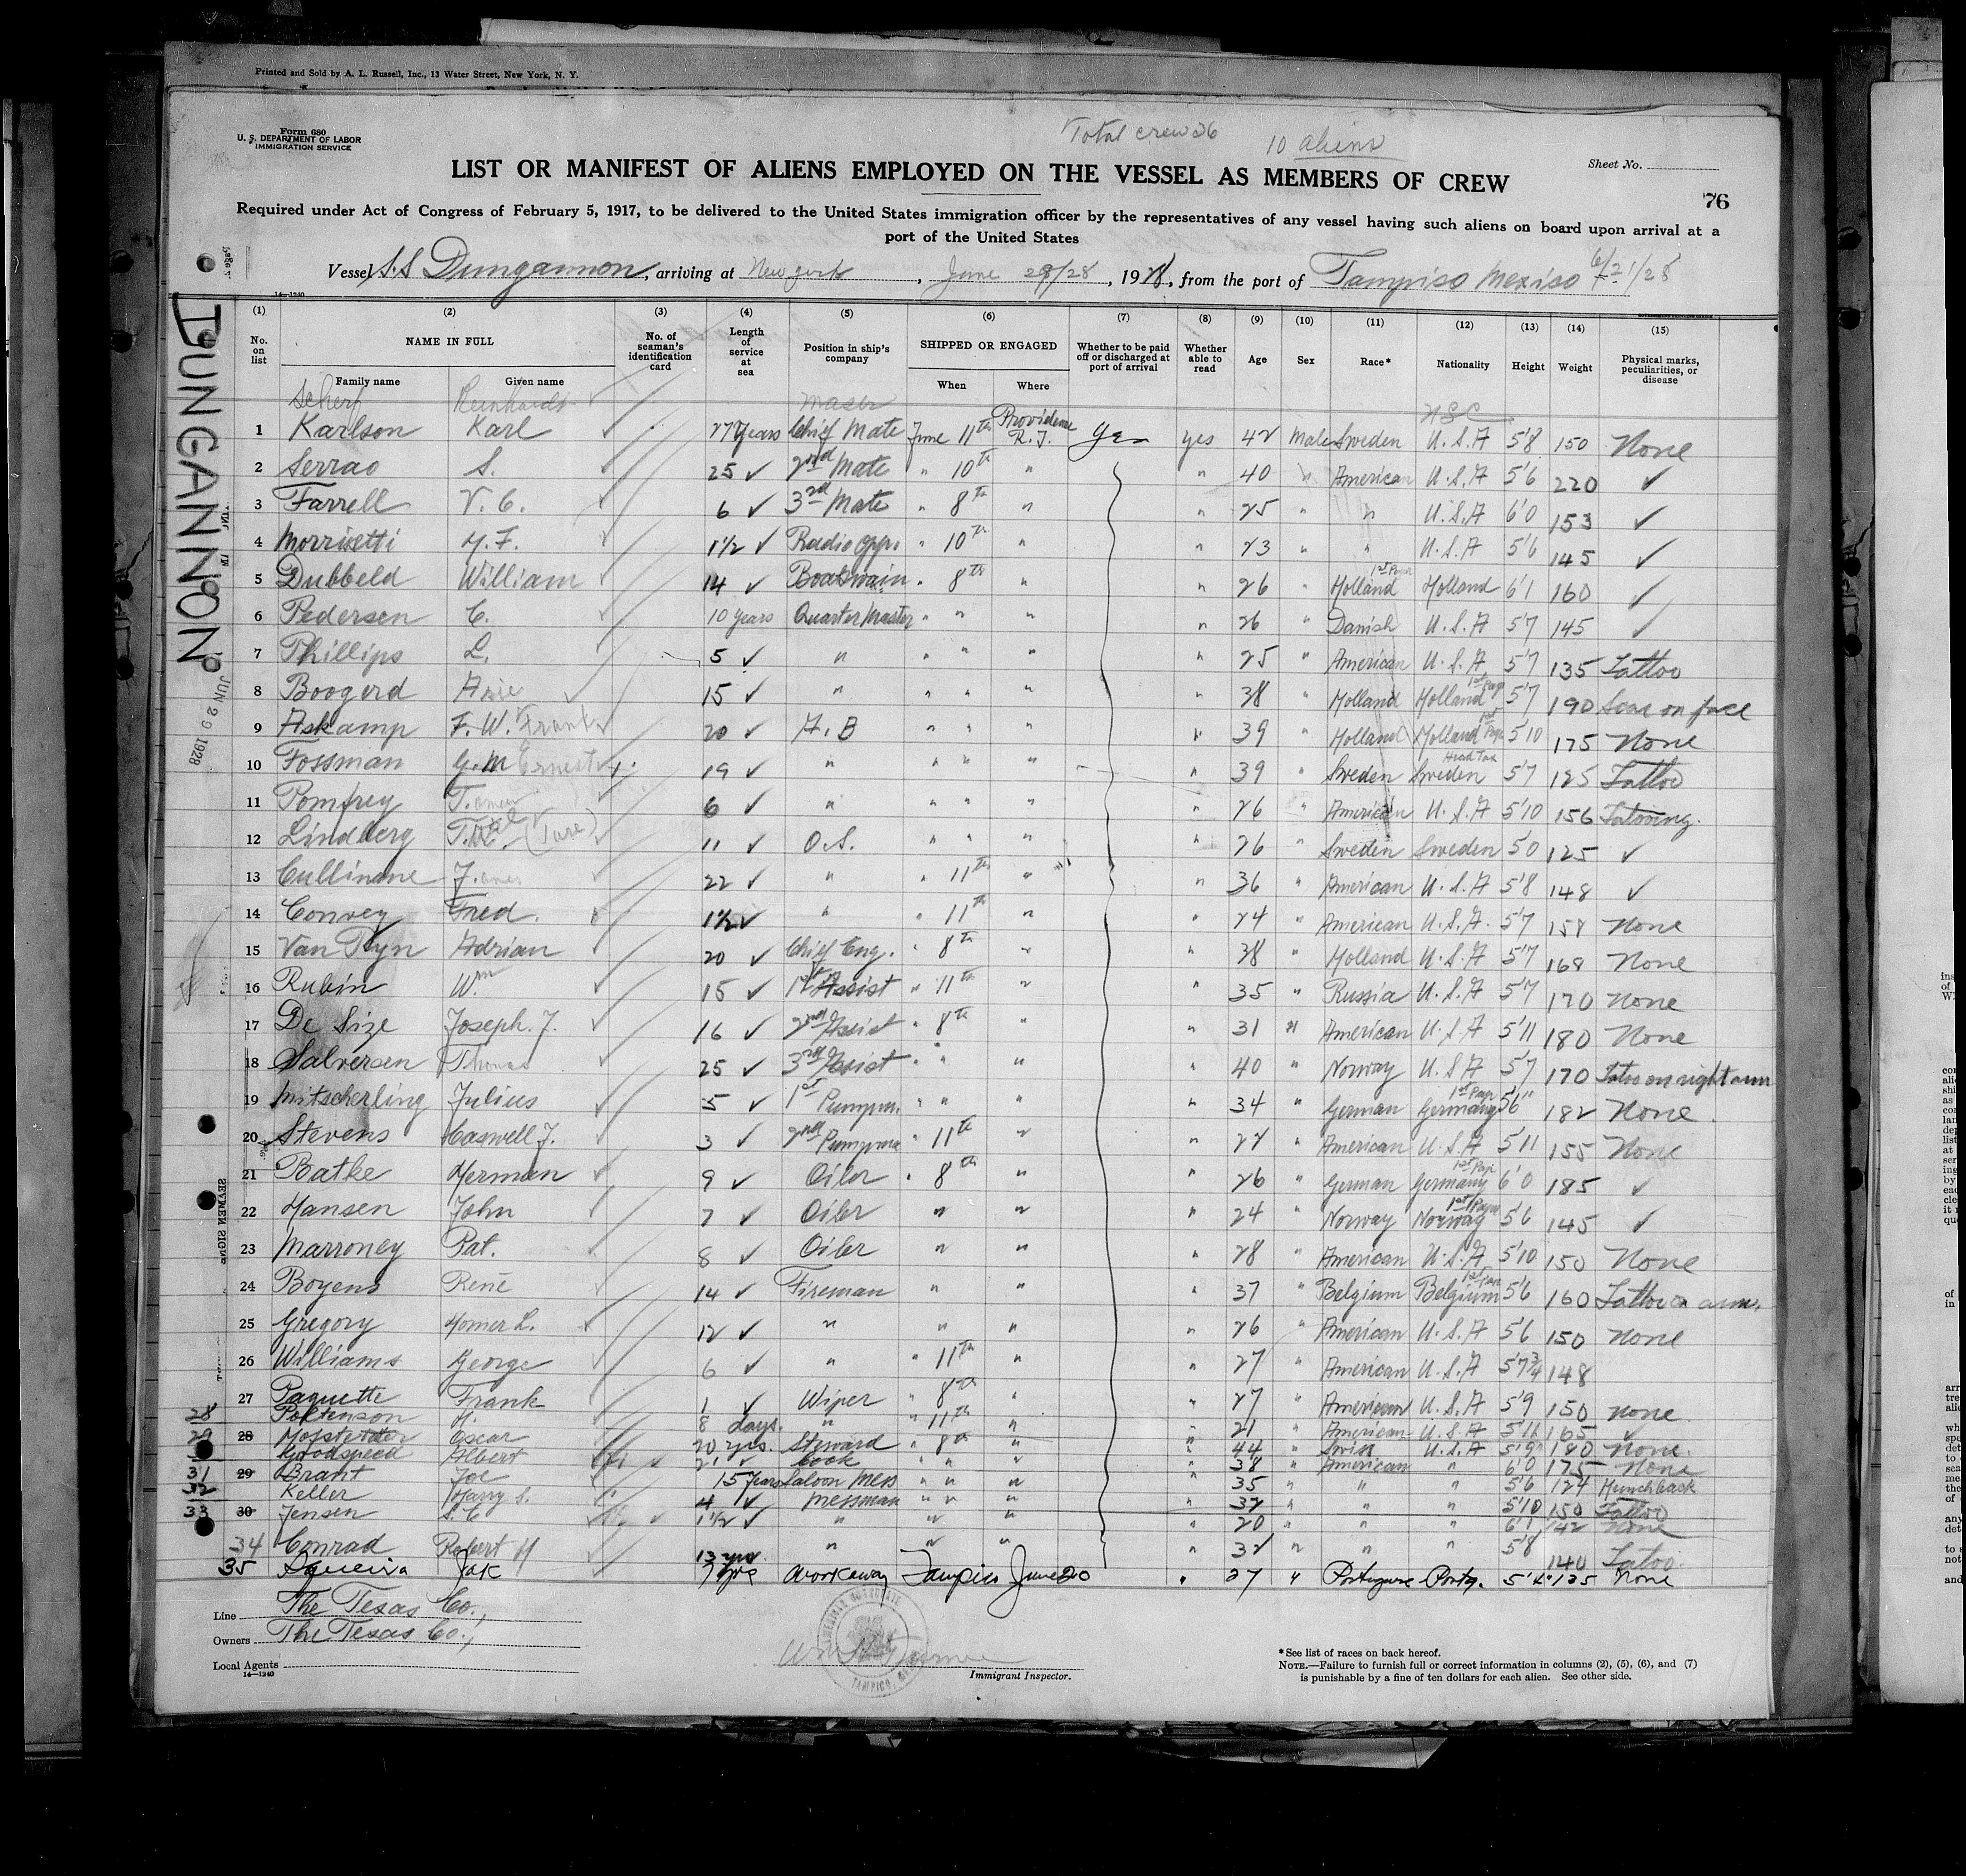 Printed and Sold by A. L. Russell, Inc., 13 Water Street, New York, N. Y.
Form 680
U. S. DEPARTMENT OF LABOR
IMMIGRATION SERVICE
Total crew 26 10 aliens
Sheet No.
LIST OR MANIFEST OF ALIENS EMPLOYED ON THE VESSEL AS MEMBERS OF CREW
76
Required under Act of Congress of February 5, 1917, to be delivered to the United States immigration officer by the representatives of any vessel having such aliens on board upon arrival at a
port of the United States
Vessel S.S Dungannon, arriving at New york, June 28/28, 1928, from the port of Tampiso Mexiso 6/21/28
14-1240
DUNGANNON
JUN 29 1928
(1) (2) (3) (4) (5) (6) (7) (8) (9) (10) (11) (12) (13) (14) (15)
No. on list NAME IN FULL Family name Given name No. of seaman's identification card Length of service at sea Position in ship's company SHIPPED OR ENGAGED When Where Whether to be paid off or discharged at port of arrival Whether able to read Age Sex Race* Nationality Height Weight Physical marks, peculiarities, or disease
Scherf Reinhardt Master USC
1 Karlson Karl 27 years Chief Mate June 11th Providence R.I. yes yes 42 Male Sweden U.S.A 5'8 150 None
2 Serrao S. 25 ✓ 2nd Mate " 10th " " 40 " American U.S.A 5'6 220 ✓
3 Farrell V. C. 6 ✓ 3rd Mate " 8th " " 25 " " U.S.A 6'0 153 ✓
4 Morrisetti 1½ ✓ Radio oppr. " 10th " " 23 " " U.S.A 5'6 145 ✓
5 Dubbeld William 14 ✓ Boatswain " 8th " " 26 " Holland Holland 6'1 160 ✓
6 Pedersen C. 10 years Quarter Master " " " " 26 " Danish U.S.A 5'7 145 ✓
7 Phillips L. 5 ✓ " " " " " 25 " American U.S.A 5'7 135 Tattoo
8 Boogerd Arie 15 ✓ " " " " " 38 " Holland Holland 1st Pap 5'7 190 Scar on face
9 Askamp F. W. Frank 20 ✓ A.B " " " " 39 " Holland Holland 1st Pap 5'10 175 None
10 Fossman G. M Ernest 19 ✓ " " " " " 39 " Sweden Sweden Head Tax 5'7 125 Tattoo
11 Pomfrey 6 ✓ " " " " " 26 " American U.S.A 5'10 156 Tatooing.
12 Lindberg (Ture) 11 ✓ O.S. " " " " 26 " Sweden Sweden 5'0 125 ✓
13 Cullinane James 22 ✓ " " 11th " " 36 " American U.S.A 5'8 148 ✓
14 Convey Fred. 1½ ✓ " " 11th " " 24 " American U.S.A. 5'7 158 None
15 Van Ryn Adrian 20 ✓ Chief Eng. " 8th " " 38 " Holland U.S.A 5'7 168 None
16 Rubin Wm 15 ✓ 1st Assist " 11th " " 35 " Russia U.S.A 5'7 170 None
17 De Size Joseph. J. 16 ✓ 2nd Assist " 8th " " 31 " American U.S.A 5'11 180 None
18 Salversen Thomas 25 ✓ 3rd Assist " " " " 40 " Norway U.S.A 5'7 170 Tatoo on right arm
19 Mitscherling Julius 5 ✓ 1st Pumpm. " " " " 34 " German Germany 1st Pap 5'6" 182 None.
20 Stevens Caswell J. 3 ✓ 2nd Pumpma " 11th " " 22 " American U.S.A 5'11 155 None
21 Batke Herman 9 ✓ Oiler " 8th " " 26 " German Germany 1st Pap 6'0 185 ✓
22 Hansen John 7 ✓ Oiler " " " 24 " Norway Norway 1st Paper 5'6 145 ✓
23 Marroney Pat. 8 ✓ Oiler " " " 28 " American U.S.A 5'10 150 None
24 Boyens René 14 ✓ Fireman " " " 37 " Belgium Belgium 1st Pap 5'6 160 Tattoo on arm.
25 Gregory Homer L. 12 ✓ " " " " 26 " American U.S.A 5'6 150 None
26 Williams George 6 ✓ " " 11th " " 27 " American U.S.A 5'7¾ 148
27 Paquette Frank 1 ✓ Wiper " 8th " " 27 " American U.S.A 5'9 150 None
28 H. 8 days " " 11th " " 21 " American U.S.A 5'11 165 ✓
29 28 Hofstetter Oscar 20 yrs. Steward " 8th " " 44 " Swiss U.S.A 5'9" 180 None.
Goodspeed Albert 21 ✓ Cook " " " " 38 " American " 6'0 175 None
31 29 Brant Joe 15 years Saloon Mess " " " " 35 " " " 5'6 124 Hunchback
32 Keller Harry S. 4 ✓ Messman " " " " 32 " " " 5'10 150 Tattoo
33 30 Jensen S. C 1½ ✓ " " " " 20 " " " 6'1 142 None
34 Conrad Robert H 13 yrs. " " " " 32 " " " 5'8 140 Tatoo.
35 Siqueira Jak 7 yrs Workaway Tampico June 20 " 27 " Portuguese Portg. 5'4" 135 None
Line The Texas Co.,
Owners The Texas Co.,
Local Agents
14-1240
Immigrant Inspector.
TAMPICO,
*See list of races on back hereof.
NOTE.—Failure to furnish full or correct information in columns (2), (5), (6), and (7)
is punishable by a fine of ten dollars for each alien. See other side.